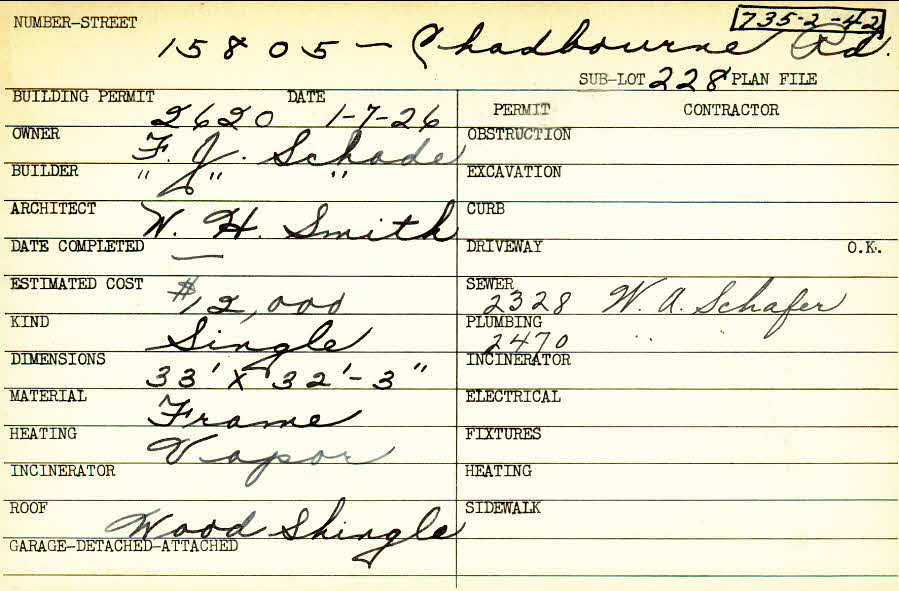 NUMBER-STREET
735-2-42
15805 - Chadbourne Rd.
SUB-LOT 228 PLAN FILE
BUILDING PERMIT DATE
2620 1-7-26
OWNER F. J. Schade
BUILDER " " "
ARCHITECT W. H. Smith
DATE COMPLETED —
ESTIMATED COST $12,000
KIND Single
DIMENSIONS 33' x 32'-3"
MATERIAL Frame
HEATING Vapor
INCINERATOR
ROOF Wood Shingle
GARAGE-DETACHED-ATTACHED
PERMIT CONTRACTOR
OBSTRUCTION
EXCAVATION
CURB
DRIVEWAY O.K.
SEWER
2328 W. A. Schafer
PLUMBING
2470 " "
INCINERATOR
ELECTRICAL
FIXTURES
HEATING
SIDEWALK